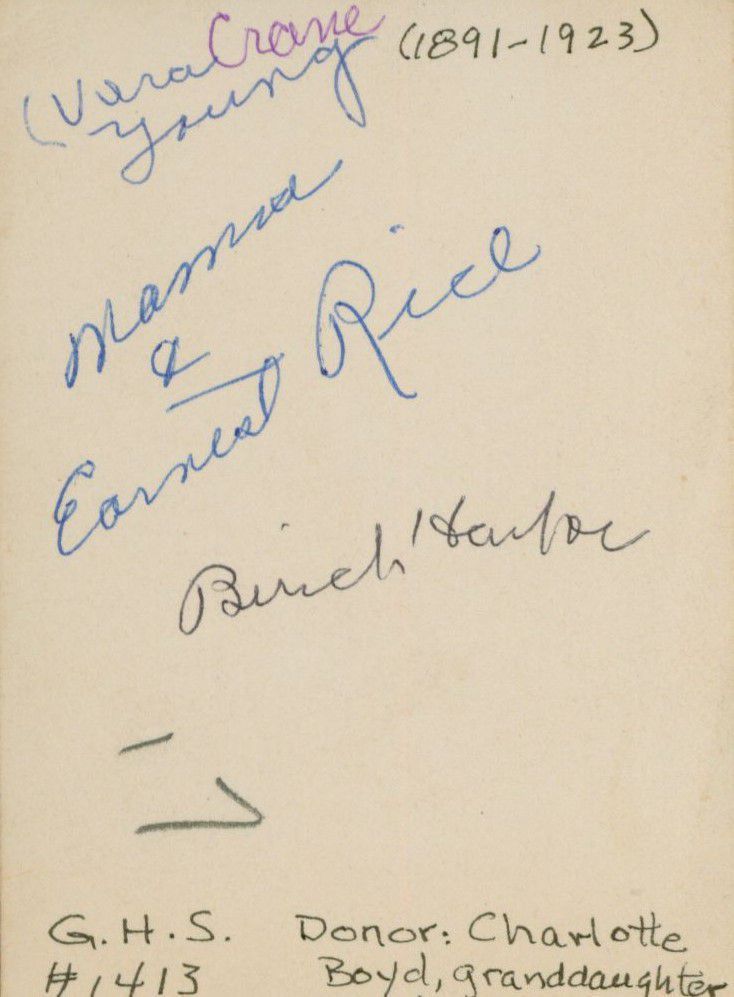 (Vera Crane (1891-1923)
Young
Mamma
&
Earnest Rice
Birch Harbor
G.H.S. Donor: Charlotte
#1413 Boyd, granddaughter